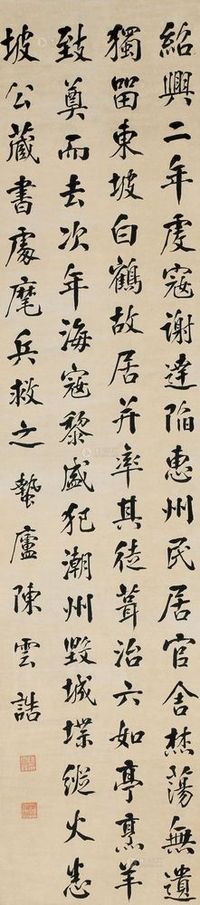 紹興二年虔寇謝達陷惠州民居官舍焚蕩無遺
獨留東坡白鶴故居并率其徒葺治六如亭烹羊
致奠而去次年海寇黎盛犯潮州毀城堞縱火悉
坡公藏書處麾兵救之 蟄廬陳雲誥